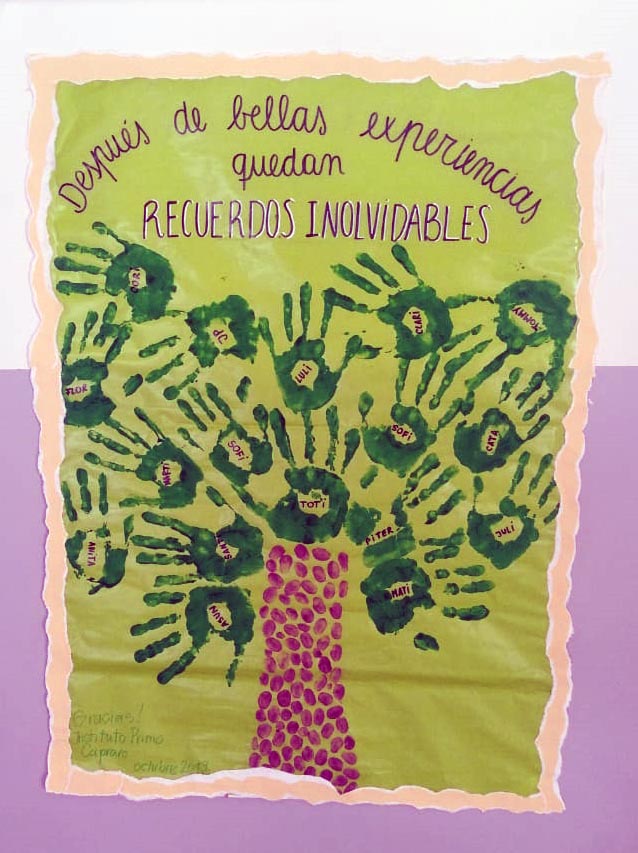 Después de bellas experiencias
quedan
RECUERDOS INOLVIDABLES
DORI
JP
LULI
CLARI
TOMMY
FLOR
SOFI
SOFI
CATA
MARTI
TOTI
PITER
JULI
ANITA
SANTI
ASUN
MATI
Gracias!
Instituto Primo
Capraro
octubre 2018